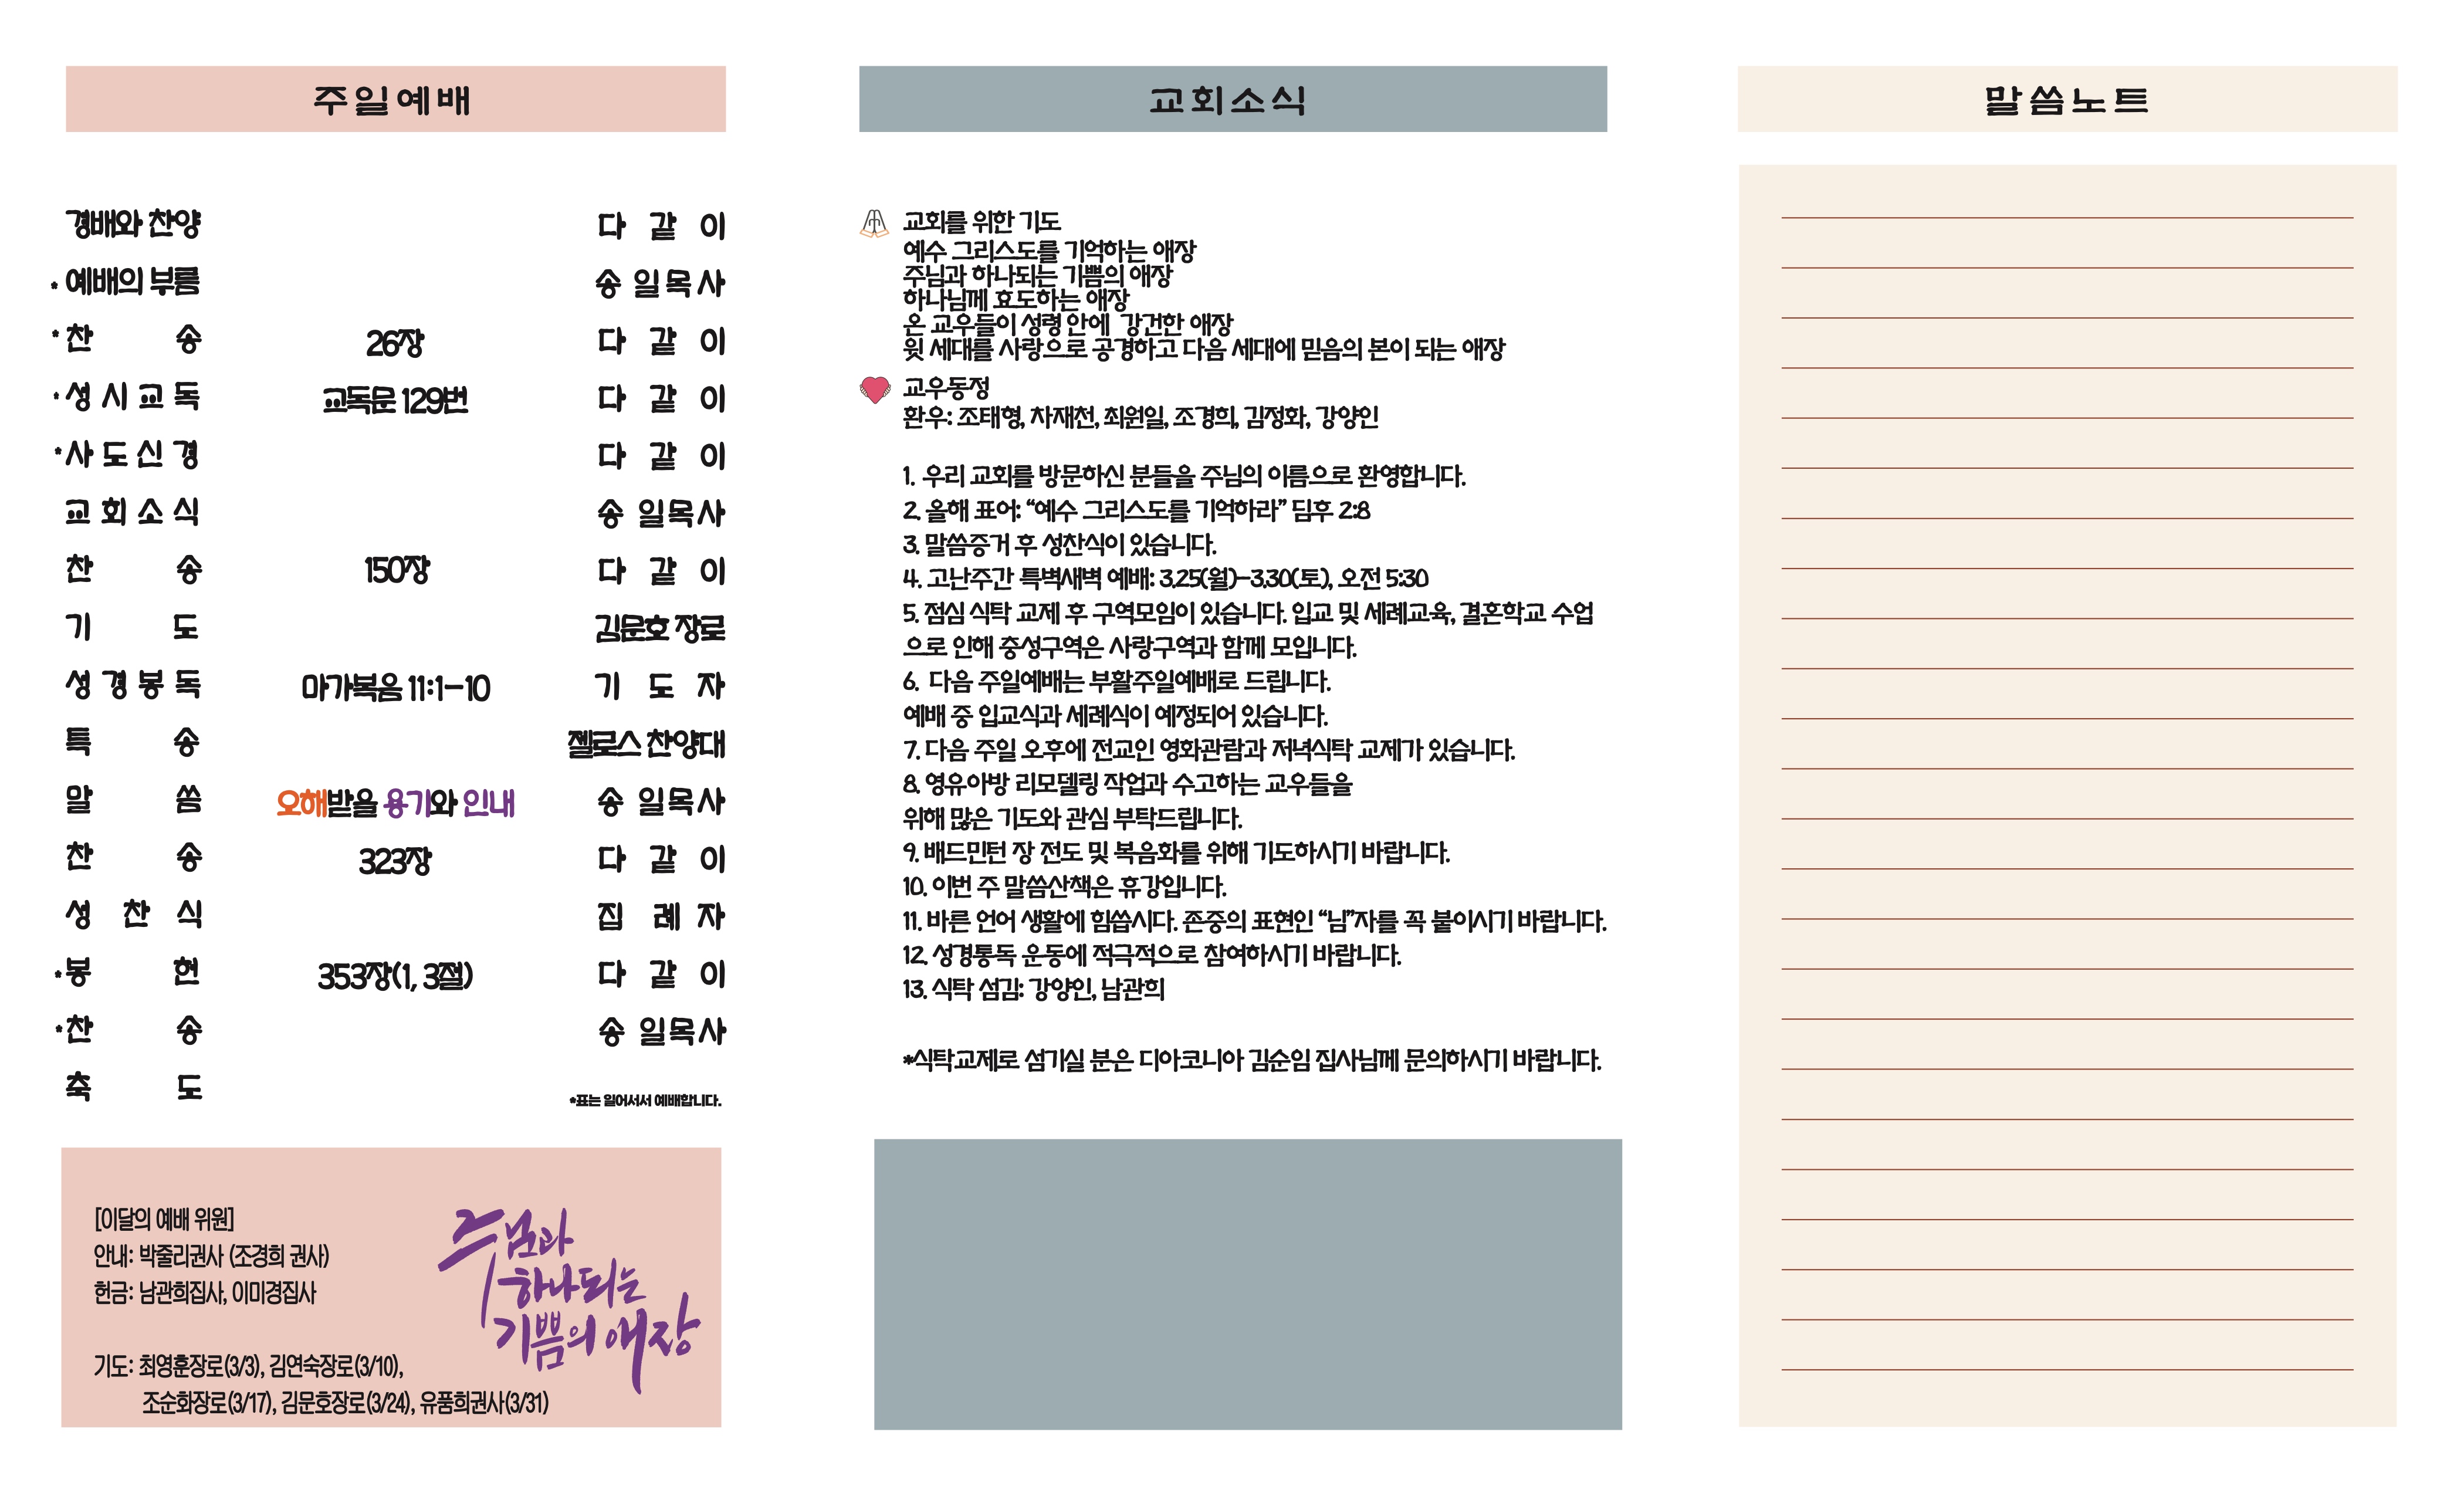 주일예배
경배와 찬양 다 같 이
* 예배의 부름 송 일 목 사
* 찬 송 26장 다 같 이
* 성 시 교 독 교독문 129번 다 같 이
* 사 도 신 경 다 같 이
교 회 소 식 송 일 목 사
찬 송 150장 다 같 이
기 도 김문호 장로
성 경 봉 독 마가복음 11:1-10 기 도 자
특 송 젤로스 찬양대
말 씀 오해받을 용기와 인내 송 일 목 사
찬 송 323장 다 같 이
성 찬 식 집 례 자
* 봉 헌 353장(1, 3절) 다 같 이
* 찬 송 송 일 목 사
축 도
*표는 일어서서 예배합니다.
[이달의 예배 위원]
안내: 박줄리권사 (조경희 권사)
헌금: 남관희집사, 이미경집사
기도: 최영훈장로(3/3), 김연숙장로(3/10),
조순화장로(3/17), 김문호장로(3/24), 유품희권사(3/31)
주님과
하나되는
기쁨의 애장
교회소식
교회를 위한 기도
예수 그리스도를 기억하는 애장
주님과 하나되는 기쁨의 애장
하나님께 효도하는 애장
온 교우들이 성령 안에 강건한 애장
윗 세대를 사랑으로 공경하고 다음 세대에 믿음의 본이 되는 애장
교우동정
환우: 조태형, 차재천, 최원일, 조경희, 김정화, 강양인
1. 우리 교회를 방문하신 분들을 주님의 이름으로 환영합니다.
2. 올해 표어: “예수 그리스도를 기억하라” 딤후 2:8
3. 말씀증거 후 성찬식이 있습니다.
4. 고난주간 특벽새벽 예배: 3.25(월)-3.30(토), 오전 5:30
5. 점심 식탁 교제 후 구역모임이 있습니다. 입교 및 세례교육, 결혼학교 수업
으로 인해 충성구역은 사랑구역과 함께 모입니다.
6. 다음 주일예배는 부활주일예배로 드립니다.
예배 중 입교식과 세례식이 예정되어 있습니다.
7. 다음 주일 오후에 전교인 영화관람과 저녁식탁 교제가 있습니다.
8. 영유아방 리모델링 작업과 수고하는 교우들을
위해 많은 기도와 관심 부탁드립니다.
9. 배드민턴 장 전도 및 복음화를 위해 기도하시기 바랍니다.
10. 이번 주 말씀산책은 휴강입니다.
11. 바른 언어 생활에 힘씁시다. 존중의 표현인 “님”자를 꼭 붙이시기 바랍니다.
12. 성경통독 운동에 적극적으로 참여하시기 바랍니다.
13. 식탁 섬김: 강양인, 남관희
*식탁교제로 섬기실 분은 디아코니아 김순임 집사님께 문의하시기 바랍니다.
말씀노트